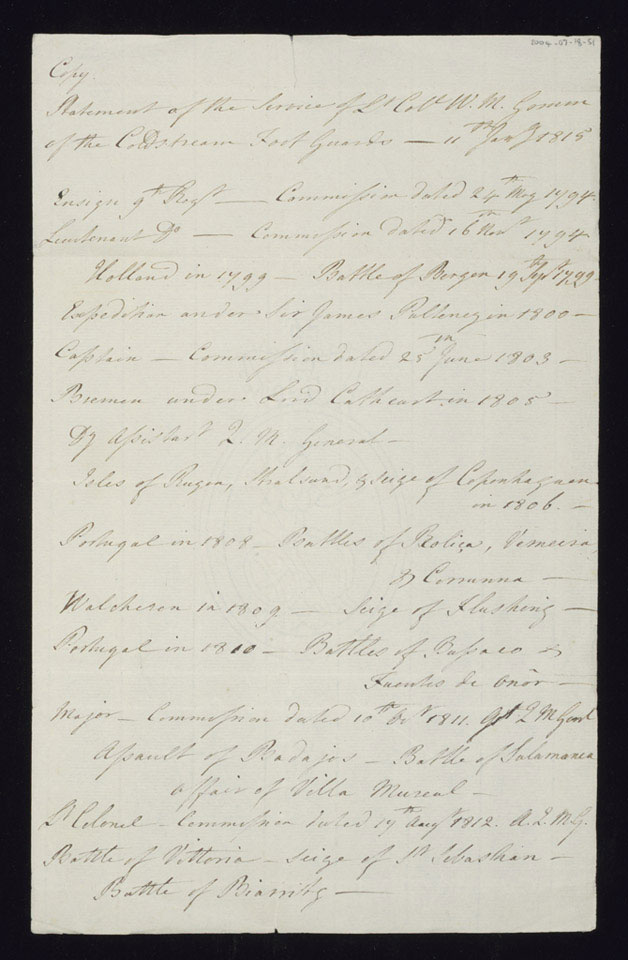 2004-07-18-51
Copy.
Statement of the Service of Lt Coll W. M. Gomm
of the Coldstream Foot Guards — 11th Jany 1815
Ensign 9th Regt — Commission dated 24th May 1794.
Lieutenant Do — Commission dated 16th Novr 1794
Holland in 1799 — Battle of Bergen 19th Sept 1799
Expedition under Sir James Pulteney in 1800 —
Captain — Commission dated 25th June 1803 —
Bremen under Lord Cathcart in 1805 —
Dy Assistant Q. M. General —
Isles of Rugen, Stralsund, & Seige of Copenhaguen
in 1806. —
Portugal in 1808 — Battles of Roliça, Vimeira,
& Corunna —
Walcheren in 1809 — Seige of Flushing —
Portugal in 1810 — Battles of Busaco &
Fuentes de Onôr —
Major — Commission dated 10th Octr 1811. Q M Genl
Assault of Badajos — Battle of Salamanca
Affair of Villa Mureal —
Lt Colonel — Commission dated 17th Augt 1812. A. Q. M. G.
Battle of Vittoria — Seige of St Sebastian —
Battle of Biarritz —